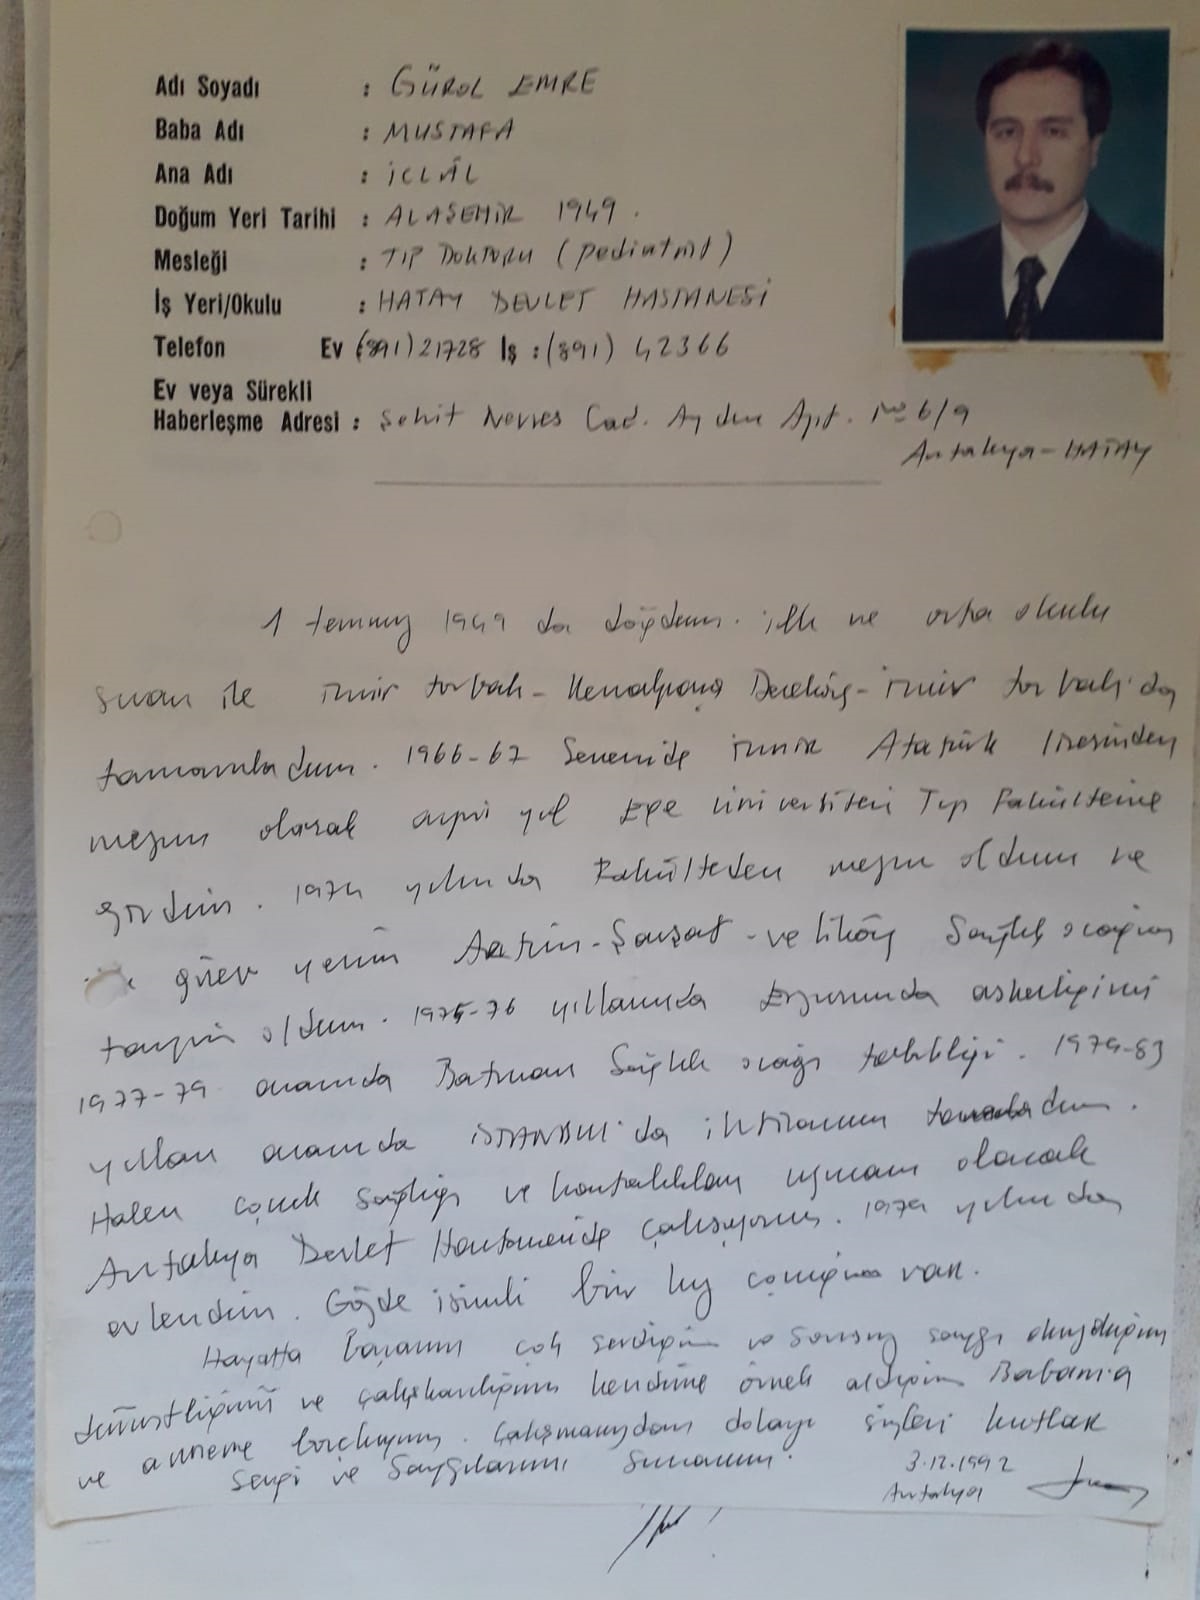 Adı Soyadı : GÜROL EMRE
Baba Adı : MUSTAFA
Ana Adı : İCLÂL
Doğum Yeri Tarihi : ALAŞEHİR 1949.
Mesleği : TIP DOKTORU (pediatrist)
İş Yeri/Okulu : HATAY DEVLET HASTANESİ
Telefon Ev (891) 21728 İş : (891) 42366
Ev veya Sürekli
Haberleşme Adresi : Şehit Nevres Cad. Aydın Apt. No 6/9
Antakya - HATAY
1 temmuz 1949 da doğdum. ilk ve orta okulu
sırası ile izmir torbalı - Kemalpaşa - izmir torbalı'da
tamamladım. 1966-67 Senesinde izmir Atatürk lisesinden
mezun olarak aynı yıl Ege üniversitesi Tıp Fakültesine
girdim. 1974 yılında Fakülteden mezun oldum ve
ilk görev yerim Artvin - Şavşat - Veliköy Sağlık ocağına
tayin oldum. 1975-76 yıllarında Erzurumda askerliğimi
1977-79 arasında Batman Sağlık ocağı tabibliği. 1979-83
yılları arasında İSTANBUL'da ihtisasımı tamamladım.
Halen çocuk sağlığı ve hastalıkları uzmanı olarak
Antakya Devlet Hastanesinde çalışıyorum. 1979 yılında
evlendim. Gözde isimli bir kız çocuğum var.
Hayatta başarımı çok sevdiğim ve sonsuz saygı duyduğum
dürüstlüğünü ve çalışkanlığını kendime örnek aldığım Babama
ve anneme borçluyum. Çalışmanızdan dolayı sizleri kutlar
Sevgi ve Saygılarımı Sunarım.
3.12.1992
Antakya